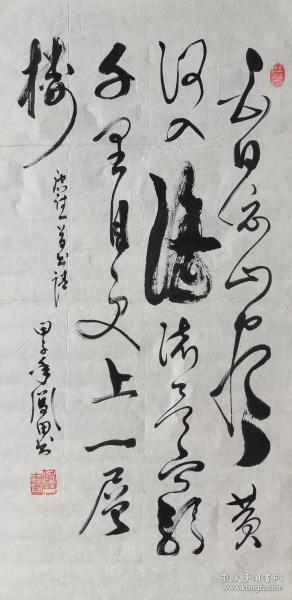 白日依山尽黄
河入海流欲穷
千里目更上一层
楼
唐诗一首
甲子年凤田书
孔夫子旧书网
www.kongfz.com